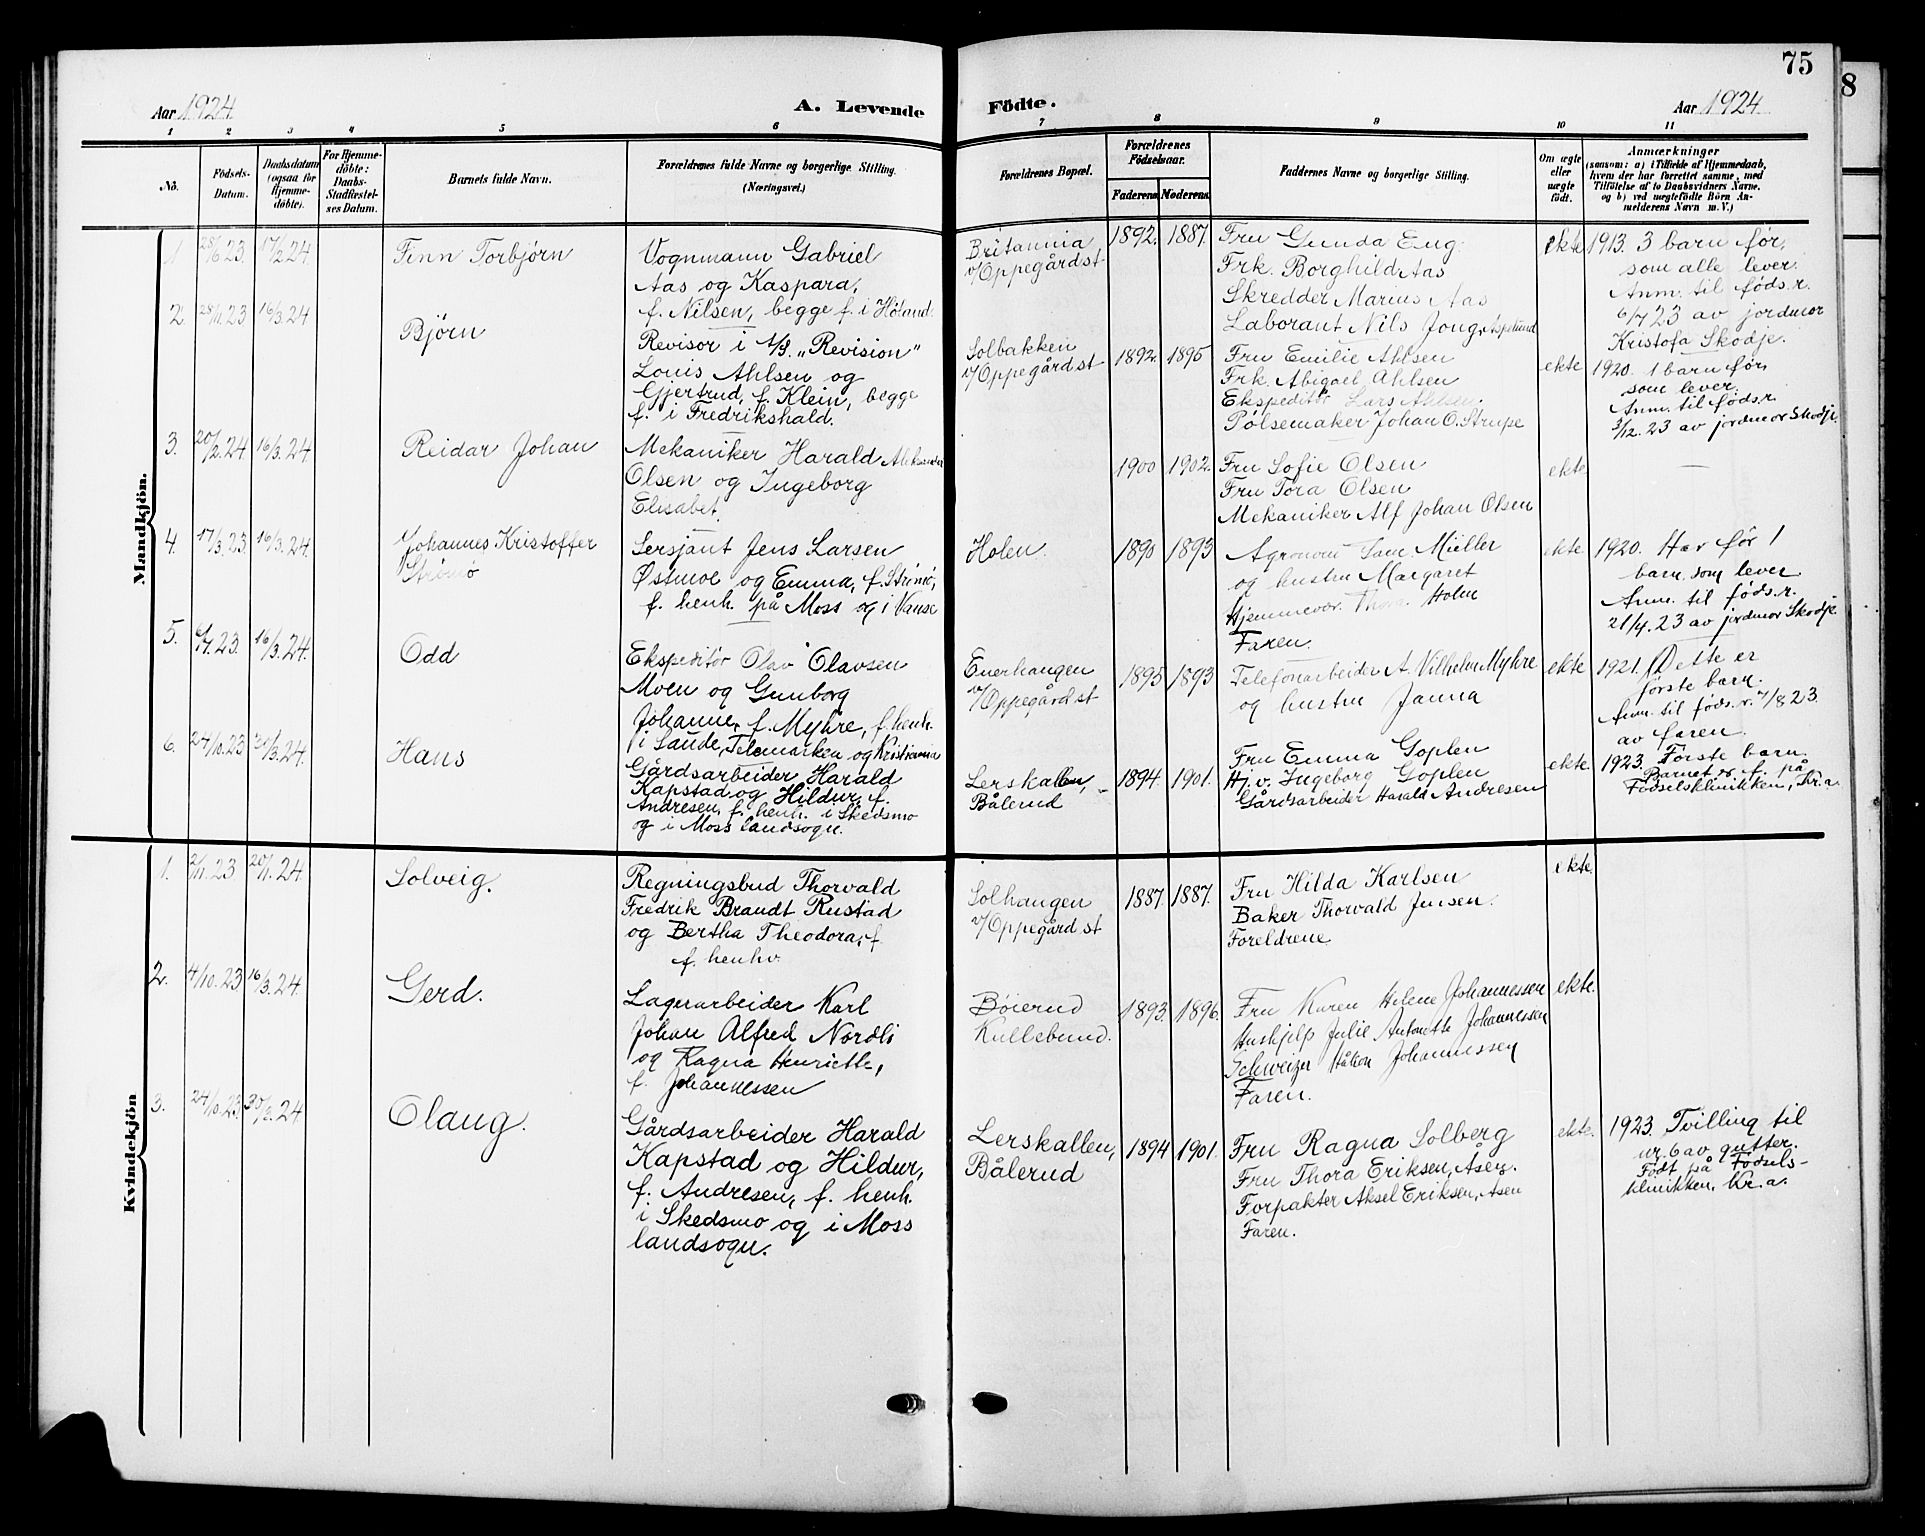 75
8
Aar 1924
A. Levende
Födte.
Aar 1924
1 2 3 4 5 6 7 8 9 10 11
No.
Födsels-
Datum.
Daabsdatum
(ogsaa for
Hjemme-
döbte).
For Hjemme-
döbte:
Daabs-
Stadfæstel-
ses Datum.
Barnets fulde Navn.
Forældrenes fulde Navne og borgerlige Stilling.
(Næringsvei.)
Forældrenes Bopæl.
Forældrenes
Födselsaar.
Faderens. Moderens.
Faddernes Navne og borgerlige Stilling.
Om ægte
eller
uægte
født.
Anmærkninger
(saasom: a) i Tilfælde af Hjemmedaab,
hvem der har forrettet samme, med
Tilföielse af to Daabsvidners Navne.
og b) ved uægtefödte Börn An-
melderens Navn m. V.)
Mandkjön.
1 28/6 23. 17/2 24. Finn Torbjørn
Vognmann Gabriel
Aas og Kaspara,
f. Nilsen, begge f. i Høland.
Britannia
v/Oppegård st
1892. 1887.
Fru Gunda Eng.
Frk. Borghild Aas
Skredder Marius Aas
Laborant Nils Jong. Aspelund
ekte
1913. 3 barn før,
som alle lever.
Anm. til føds.r.
6/7 23 av jordmor
Kristofa Skodje.
2. 28/11 23 16/3 24 Bjørn
Revisor i A/S. „Revision"
Louis Ahlsen og
Gjertrud, f. Klein, begge
f. i Fredrikshald.
Solbakken
v/Oppegård st
1892. 1895
Fru Emilie Ahlsen
Frk. Abigael Ahlsen
Ekspeditör Lars Ahlsen.
Pølsemaker Johan O. Strupe
ekte
1920. 1 barn før,
som lever.
Anm. til føds.r.
3/12. 23 av jordmor Skodje.
3. 20/2. 24. 16/3. 24. Reidar Johan
Mekaniker Harald
Olsen og Ingeborg
Elisabet
1900 1902.
Fru Sofie Olsen
Fru Tora Olsen
Mekaniker Alf Johan Olsen
ekte
4. 17/3. 23. 16/3. 24. Johannes Kristoffer
Strömö
Sersjant Jens Larsen
Østmoe og Emma, f. Strömö,
f. henh. på Moss og i Vanse
Holen.
1890 1893
Agronom Sam. Müller
og hustru Margaret
Hjemmevær. Thora Holm
Faren.
ekte.
1920. Har før 1
barn, som lever.
Anm. til føds.r.
21/4. 23 av jordmor Skodje
5. 23. 16/3. 24. Odd
Ekspeditör Olav Olavsen
Moen og Gunborg
Johanne, f. Myhre, f. henh.
i Saude, Telemarken og Kristiania
Enerhaugen
v/Oppegård st
1895 1893
Telefonarbeider A. Vilhelm Myhre
og hustru Janna
ekte
1921. Dette er
første barn.
Anm. til føds.r. 7/8 23.
av faren.
6. 24/10. 23 30/3. 24. Hans
Gårdsarbeider Harald
Kapstad og Hildur, f.
Andresen, f. henh. i Skedsmo
og i Moss landsogn.
Lerskallen,
Bålerud
1894. 1901.
Fru Emma Goplen
Hj.v. Ingeborg Goplen
Gårdsarbeider Harald Andresen
ekte.
1923. Første barn.
Barnet er f. på
Fødselsklinikken, Kr.a.
Kvindekjön
1. 2/11. 23 20/1. 24. Solveig.
Regningsbud Thorvald
Fredrik Brandt Rustad
og Bertha Theodora, f.
f. henhv.
Solhaugen
v/Oppegård st
1887. 1887.
Fru Hilda Karlsen
Baker Thorvald Jensen.
Foreldrene
ekte.
2. 4/10. 23 16/3. 24. Gerd.
Lagerarbeider Karl
Johan Alfred Nordli
og Ragna Henriette,
f. Johannessen
Bøierud
Kullebund.
1893. 1896.
Fru Karen Helene Johannessen
Huskjelp Julie Antonette Johannessen
Schweizer Håkon Johannessen
Faren.
ekte.
3. 24/10. 23 30/3. 24 Olaug.
Gårdsarbeider Harald
Kapstad og Hildur,
f. Andresen, f. henh.
i Skedsmo og i Moss
landsogn.
Lerskallen,
Bålerud
1894 1901.
Fru Ragna Solberg
Fru Thora Eriksen, Åsen.
Forpakter Aksel Eriksen, Åsen
Faren.
ekte.
1923. Tvilling til
nr. 6 av gutter.
Født på Fødsels-
klinikken, Kr.a.